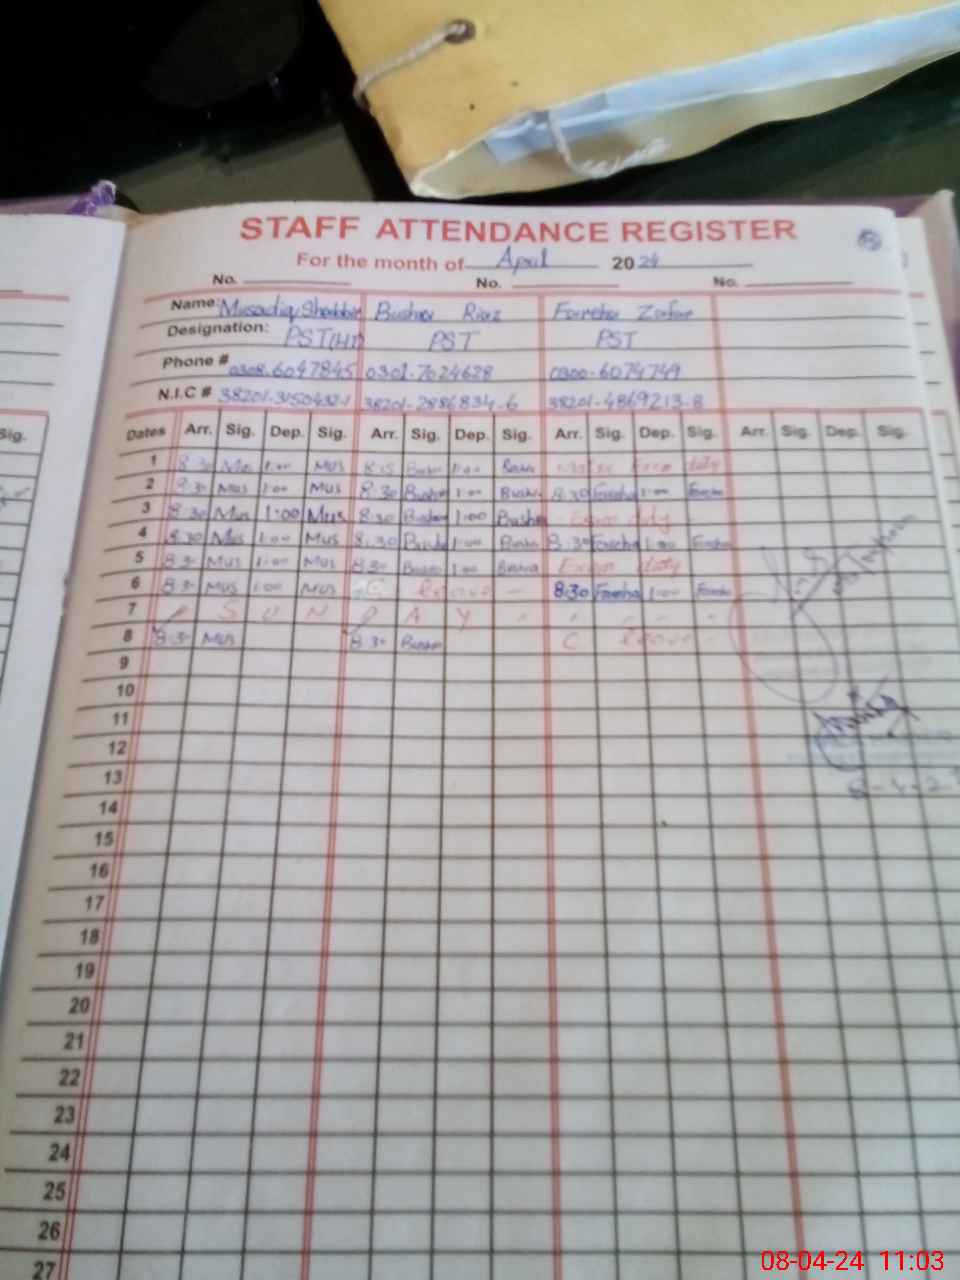 STAFF ATTENDANCE REGISTER
For the month of April 2024
No. No. No.
Name: Musadiq Shabbir Bushra Riaz Fareha Zafar
Designation: PST(HT) PST PST
Phone # 0308-6047845 0301-7024628 0300-6074749
N.I.C # 38201-3150432-1 38201-2886834-6 38201-4869213-8
Sig. Dates Arr. Sig. Dep. Sig. Arr. Sig. Dep. Sig. Arr. Sig. Dep. Sig. Arr. Sig. Dep. Sig.
1 8:30 Mus 1:00 Mus 8:15 Bushra 1:00 Exam duty
2 8:30 Mus 1:00 Mus 8:30 Bushra 1:00 Bushra 8:30 Fareha 1:00 Fareha
3 8:30 Mus 1:00 Mus 8:30 Bushra 1:00 Bushra Exam duty
4 8:30 Mus 1:00 Mus 8:30 Bushra 1:00 Bushra 8:30 Fareha 1:00 Fareha
5 8:30 Mus 1:00 Mus 8:30 Bushra 1:00 Bushra Exam duty
6 8:30 Mus 1:00 Mus C leave 8:30 Fareha 1:00 Fareha
7 S U N D A Y
8 8:30 Mus 8:30 Bushra C leave
9
10
11
12
13
14
15
16
17
18
19
20
21
22
23
24
25
26
27
08-04-24 11:03